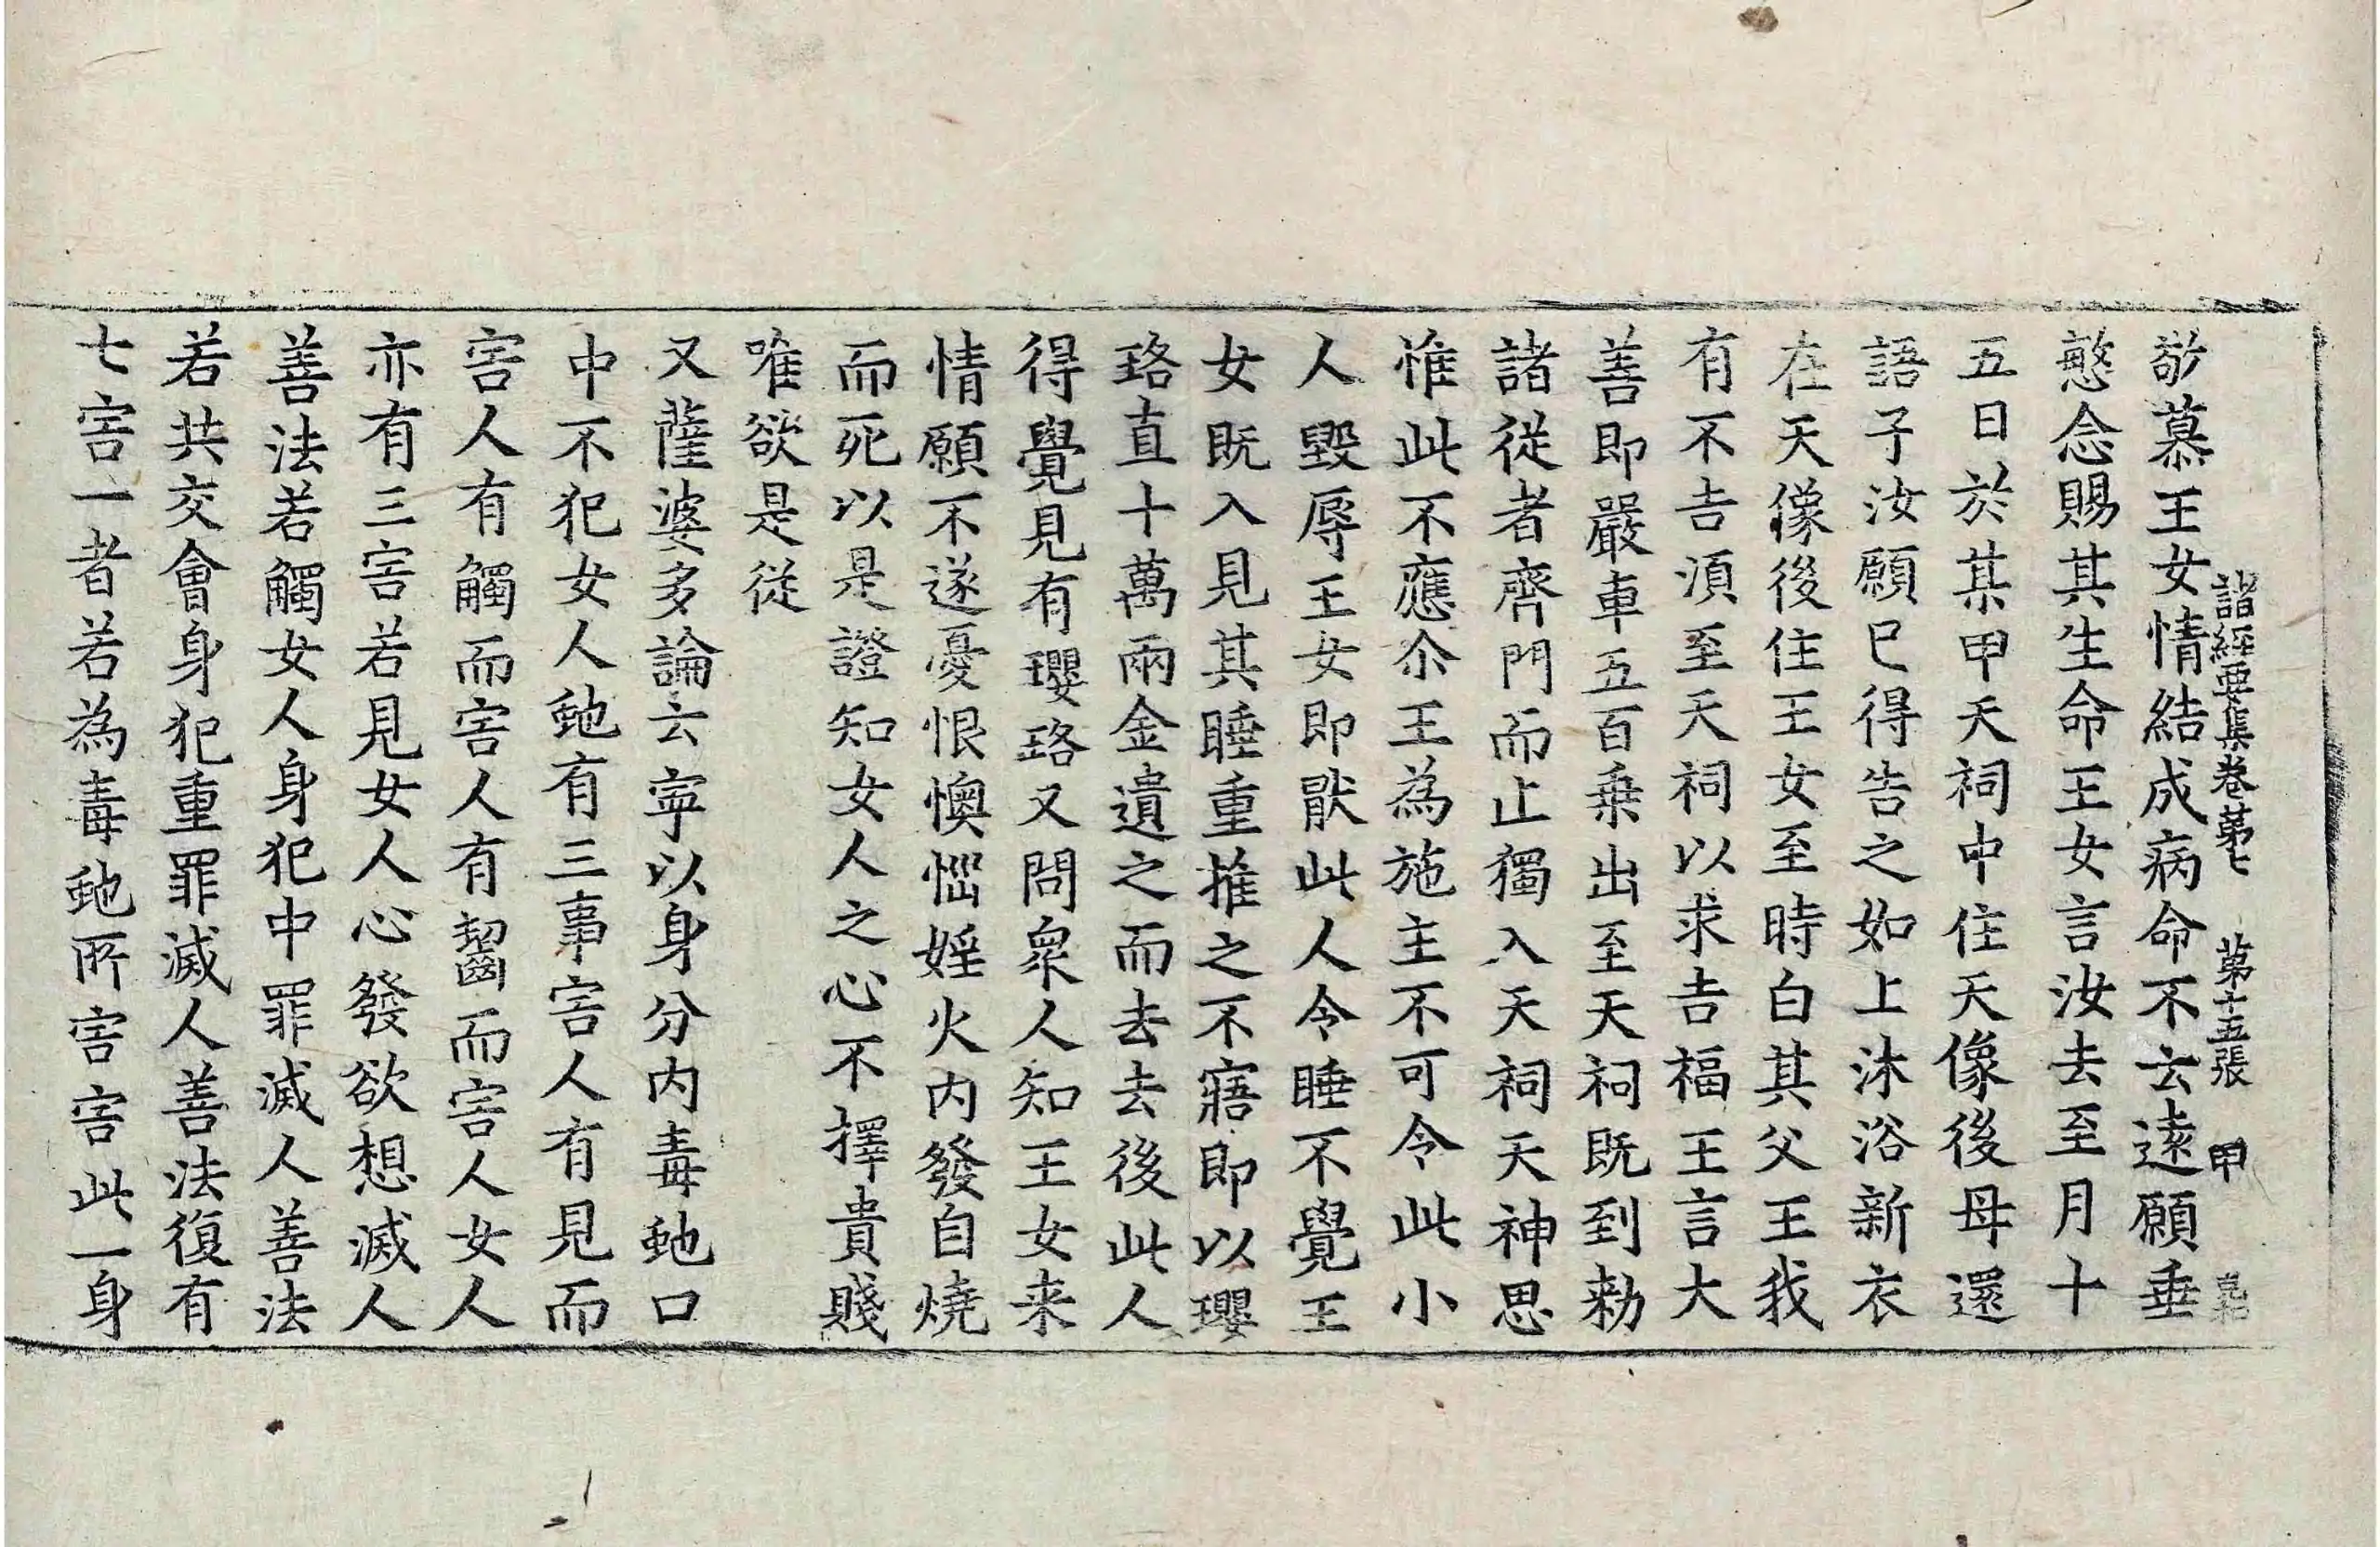 諸經要集卷苐七　苐十五張　甲
敬慕王女情結成病命不云遠願垂
慜念賜其生命王女言汝去至月十
五日於某甲天祠中住天像後母還
語子汝願已得告之如上沐浴新衣
在天像後住王女至時白其父王我
有不吉湏至天祠以求吉福王言大
善即嚴車五百乗出至天祠既到勑
諸從者齊門而止獨入天祠天神思
惟此不應尒王為施主不可令此小
人毀辱王女即猒此人令睡不覺王
女既入見其睡重推之不寤即以瓔
珞直十萬兩金遺之而去去後此人
得覺見有瓔珞又問衆人知王女来
情願不遂憂恨懊惱婬火内發自燒
而死以是證知女人之心不擇貴賤
唯欲是從
又薩婆多論云寧以身分内毒虵口
中不犯女人虵有三事害人有見而
害人有觸而害人有齧而害人女人
亦有三害若見女人心發欲想滅人
善法若觸女人身犯中罪滅人善法
若共交會身犯重罪滅人善法復有
七害一者若為毒虵所害害此一身